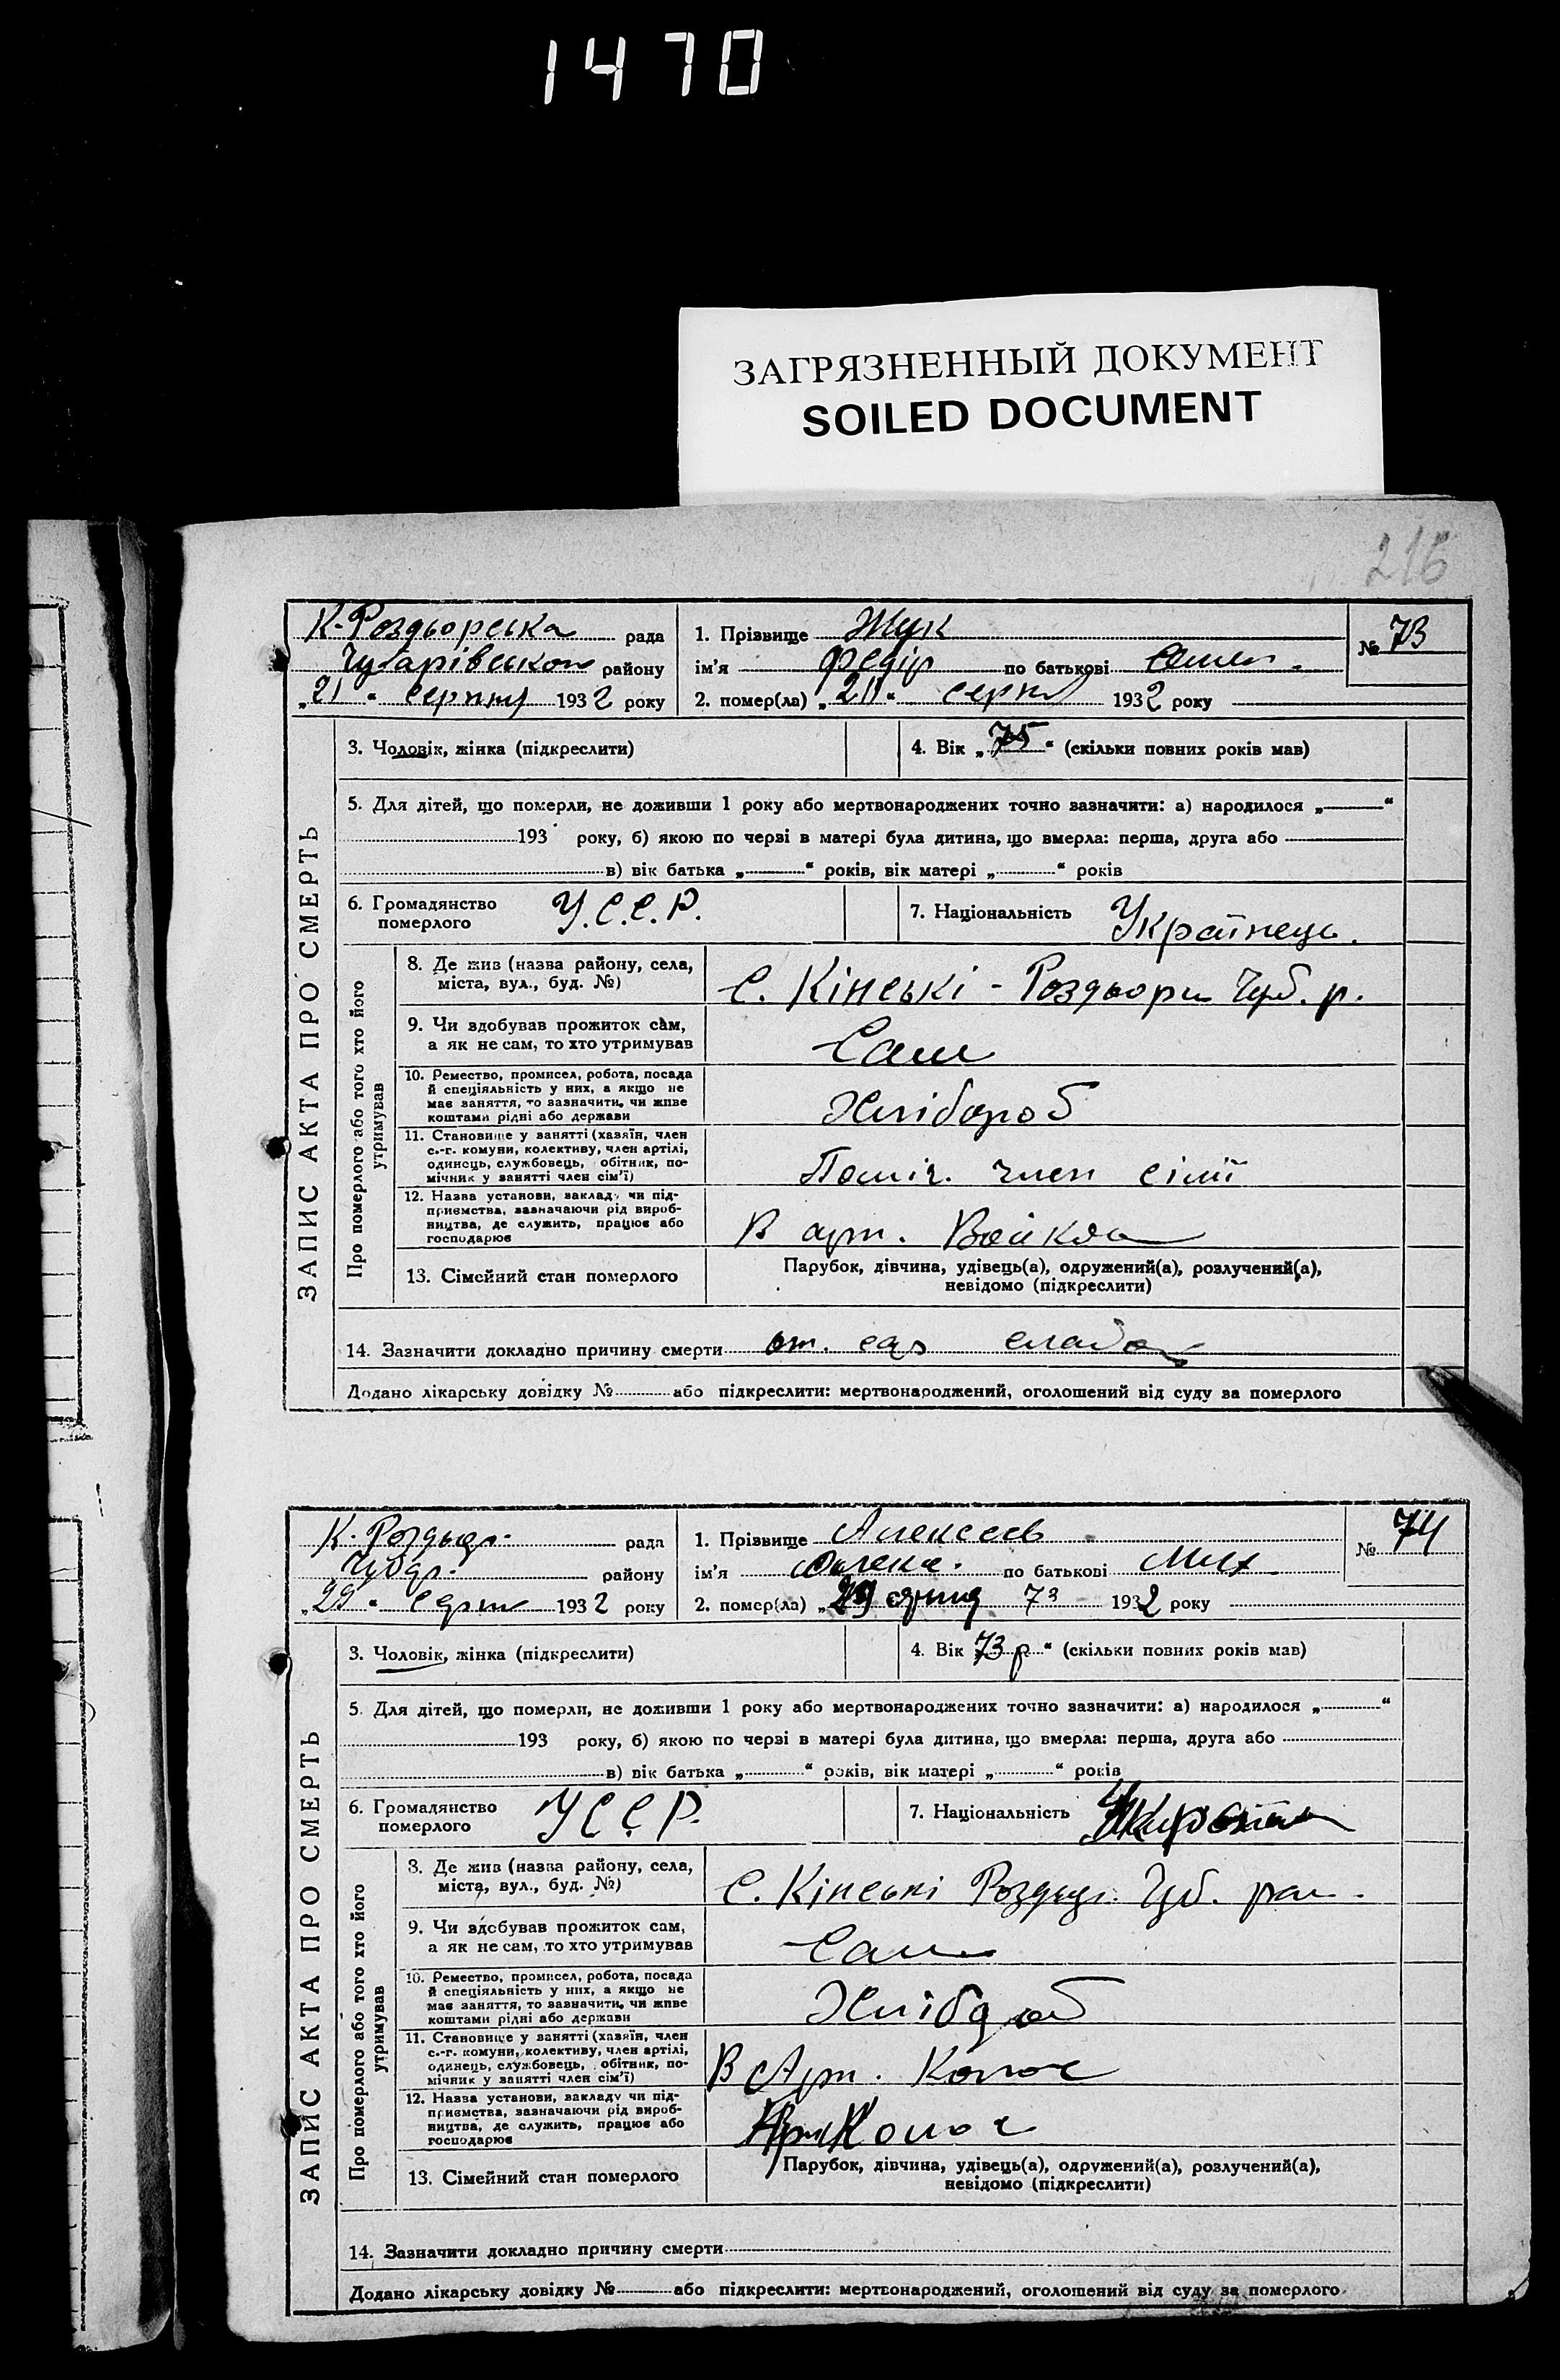 1470
ЗАГРЯЗНЕННЫЙ ДОКУМЕНТ
SOILED DOCUMENT
216
К-Роздьорська рада
Чубарівського району
„21“ серпня 1932 року
1. Прізвище Жук
ім'я Федір по батькові Семен.
2. помер(ла) „21“ серпня 1932 року
№ 73
ЗАПИС АКТА ПРО СМЕРТЬ
3. Чоловік, жінка (підкреслити)
4. Вік „75“ (скільки повних років мав)
5. Для дітей, що померли, не доживши 1 року або мертвонароджених точно зазначити: а) народилося „ “
193 року, б) якою по черзі в матері була дитина, що вмерла: перша, друга або
в) вік батька „ “ років, вік матері „ “ років
6. Громадянство
померлого
У.С.С.Р.
7. Національність Українець.
Про померлого або того хто його
утримував
8. Де жив (назва району, села,
міста, вул., буд. №)
С. Кінські - Роздьори Чуб. р.
9. Чи здобував прожиток сам,
а як не сам, то хто утримував
Сам
10. Ремество, промисел, робота, посада
й спеціяльність у них, а якщо не
має заняття, то зазначити, чи живе
коштами рідні або держави
Хлібороб
11. Становище у занятті (хазяїн, член
с.-г. комуни, колективу, член артілі,
одинець, службовець, обітник, по-
мічник у занятті член сім'ї)
Поміч. член сімї
12. Назва установи, закладу чи під-
приємства, зазначаючи рід вироб-
ництва, де служить, працює або
господарює
В арт. Войкова
13. Сімейний стан померлого
Парубок, дівчина, удівець(а), одружений(а), розлучений(а),
невідомо (підкреслити)
14. Зазначити докладно причину смерти от.
Додано лікарську довідку № або підкреслити: мертвонароджений, оголошений від суду за померлого
К. Роздьор. рада
Чубар. району
„29“ Серпн 1932 року
1. Прізвище Алексеев
ім'я по батькові Мих
2. помер(ла) „29 серпня 73 1932 року
№ 74
ЗАПИС АКТА ПРО СМЕРТЬ
3. Чоловік, жінка (підкреслити)
4. Вік 73 р“ (скільки повних років мав)
5. Для дітей, що померли, не доживши 1 року або мертвонароджених точно зазначити: а) народилося „ “
193 року, б) якою по черзі в матері була дитина, що вмерла: перша, друга або
в) вік батька „ “ років, вік матері „ “ років
6. Громадянство
померлого
УССР.
7. Національність
Про померлого або того хто його
утримував
8. Де жив (назва району, села,
міста, вул., буд. №)
С. Кінські Роздьор. Чуб. рай.
9. Чи здобував прожиток сам,
а як не сам, то хто утримував
Сам
10. Ремество, промисел, робота, посада
й спеціяльність у них, а якщо не
має заняття, то зазначити, чи живе
коштами рідні або держави
Хлібороб
11. Становище у занятті (хазяїн, член
с.-г. комуни, колективу, член артілі,
одинець, службовець, обітник, по-
мічник у занятті член сім'ї)
В Арт. Колос
12. Назва установи, закладу чи під-
приємства, зазначаючи рід вироб-
ництва, де служить, працює або
господарює
Арт Колос
13. Сімейний стан померлого
Парубок, дівчина, удівець(а), одружений(а), розлучений(а),
невідомо (підкреслити)
14. Зазначити докладно причину смерти
Додано лікарську довідку № або підкреслити: мертвонароджений, оголошений від суду за померлого